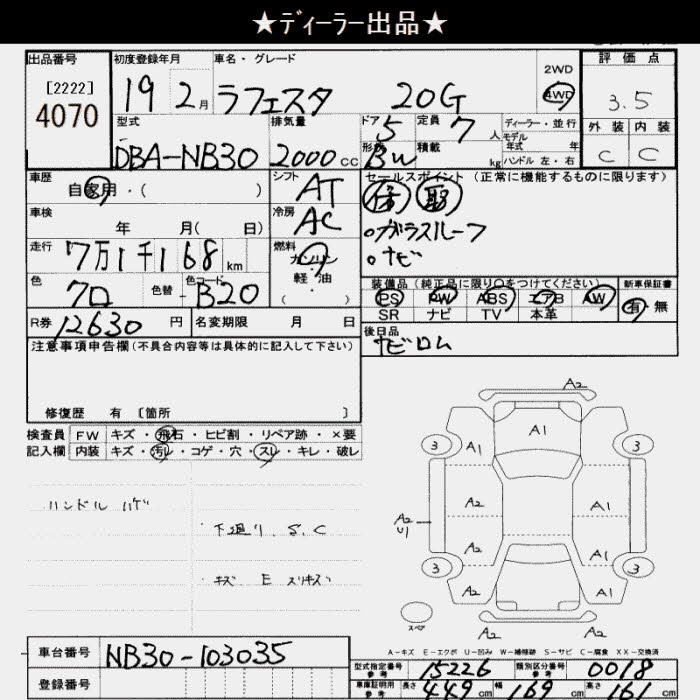 ★ディーラー出品★
出品番号 初度登録年月 車名・グレード 2WD 4WD 評価点
[2222]
4070
19 2月 ラフェスタ 20G 3.5
型式 排気量 ドア 5 定員 7人 ディーラー・並行 外装 内装
モデル年式 年
DBA-NB30 2000cc 形状 BW 積載 kg ハンドル 左・右 C C
車歴 自家用・( ) シフト AT セールスポイント (正常に機能するものに限ります)
車検 年 月( 日) 冷房 AC
・ガラスルーフ
・ナビ
走行 7万1千168km 燃料 ガソリン・軽油・( )
色 クロ 色替 色コード B20
装備品 (純正品に限り○をつけてください) 新車保証書
PS PW ABS エアB AW 有・無
SR ナビ TV 本革
R券 12630円 名変期限 月 日
後日品
ナビロム
注意事項申告欄(不具合内容等は具体的に記入して下さい)
修復歴 有 〔箇所 〕
検査員 FW キズ・飛石・ヒビ割・リペア跡・×要
記入欄 内装 キズ・汚レ・コゲ・穴・スレ・キレ・破レ
ハンドル ハゲ
下廻り S.C
キズ E スリキズ
A2
A1
3 A1 A1 3
A2 A1
A2 U1
A2 A1
3 3
A2 A1
スペア
A2 A2
A-キズ E-エクボ U-凹み W-補修跡 S-サビ C-腐食 XX-交換済
車台番号 NB30-103035
登録番号
型式指定番号 参考 15226 類別区分番号 参考 0018
車庫証明用 参考 長さ 449cm 幅 169cm 高さ 161cm